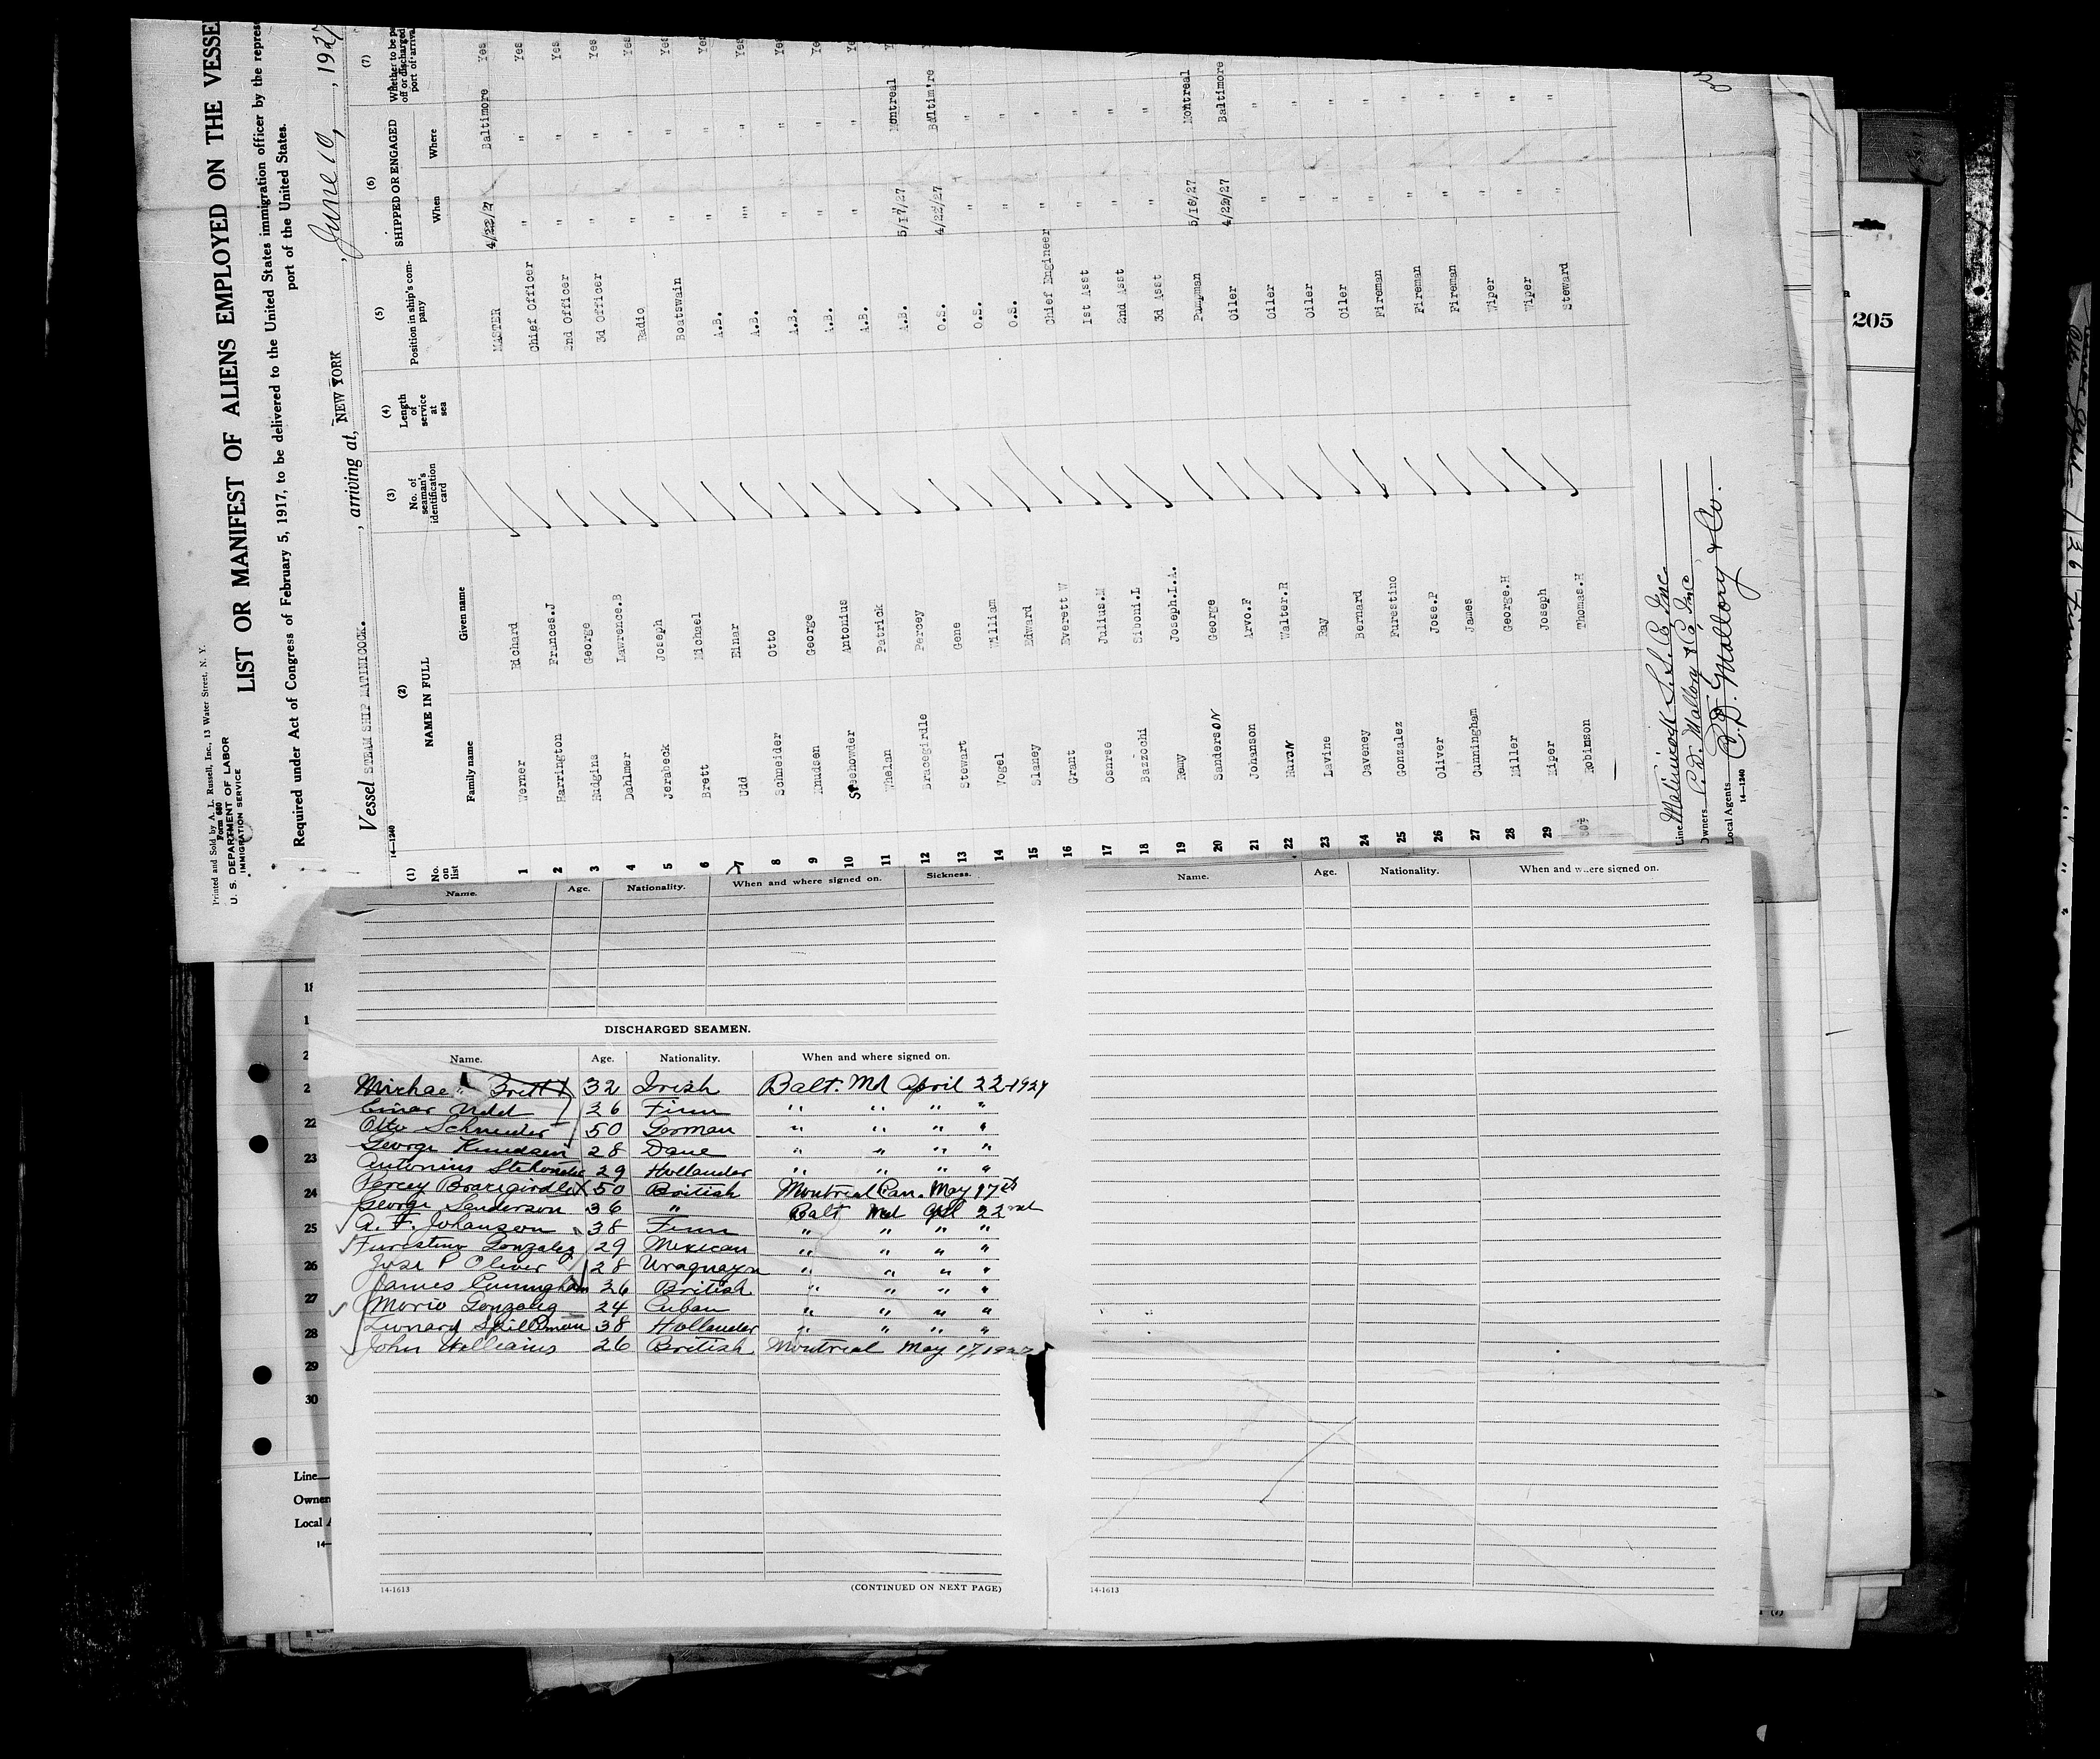 Printed and Sold by A. L. Russell, Inc., 13 Water Street, N. Y.
Form 680
U. S. DEPARTMENT OF LABOR
IMMIGRATION SERVICE
LIST OR MANIFEST OF ALIENS EMPLOYED ON THE VESSE
Required under Act of Congress of February 5, 1917, to be delivered to the United States immigration officer by the repres
port of the United States.
Vessel STEAM SHIP MATINICOCK. , arriving at, NEW YORK , June 10, , 1927
14—1240
(1) (2) (3) (4) (5) (6) (7)
No. on list NAME IN FULL No. of seaman's identification card Length of service at sea Position in ship's company SHIPPED OR ENGAGED Whether to be pa off or discharged port of arrival
Family name Given name When Where
1 Werner Richard MASTER 4/22/27 Baltimore Yes
2 Harrington Frances.J Chief Officer " " Yes
3 Hudgins George 2nd Officer " " Yes
4 Dahlmer Lawrence.B 3d Officer " " Yes
5 Jerabeck Joseph Radio " " Yes
6 Brett Michael Boatswain " " Yes
7 Udd Einar A.B. " " Yes
8 Schneider Otto A.B. " " Yes
9 Knudsen George A.B. " " Yes
10 Stehowder Antonius A.B. " " Yes
11 Whelan Patrick A.B. " "
12 Bracegirdle Percey A.B. 5/17/27 Montreal
13 Stewart Gene O.S. 4/22/27 Baltim're
14 Vogel William O.S. " "
15 Slaney Edward O.S. " "
16 Grant Everett W Chief Engineer " "
17 Osnrose Julius.M 1st Asst " "
18 Bazzochi Siboni.L 2nd Asst " "
19 Remy Joseph.L.A. 3d Asst " "
20 Sanderson George Pumpman 5/16/27 Montreal
21 Johanson Arvo.F Oiler 4/22/27 Baltimore
22 Huron Walter.R Oiler " "
23 Lavine Ray Oiler " "
24 Caveney Bernard Oiler " "
25 Gonzalez Furestino Fireman " "
26 Oliver Jose.P Fireman " "
27 Cunningham James Fireman " "
28 Miller George.H Wiper " "
29 Kiper Joseph Wiper " "
30 Robinson Thomas.H Steward " "
Line Matinicock S.S. Co Inc.
Owners C. D. Mallory & Co Inc
Local Agents C. D. Mallory & Co.
14—1240
205
Name. Age. Nationality. When and where signed on. Sickness.
Name. Age. Nationality. When and where signed on.
DISCHARGED SEAMEN.
Name. Age. Nationality. When and where signed on.
Michael Brett 32 Irish Balt. Md April 22-1927
Einar Udd 36 Finn " " " "
Otto Schneider 50 German " " " "
George Knudsen 28 Dane " " " "
Antonius Stehowder 29 Hollander " " " "
Percey Bracegirdle 50 British Montreal Can. May 17th
George Sanderson 36 " Balt Md Apl 22nd
A. F. Johanson 38 Finn " " " "
Furestino Gonzalez 29 Mexican " " " "
Jose P Oliver 28 Uraguayn " " " "
James Cunningham 36 British " " " "
Morio Gonzalez 24 Cuban " " " "
Leonard Spillman 38 Hollander " " " "
John Williams 26 British Montreal May 17, 1927
14-1613
(CONTINUED ON NEXT PAGE)
14-1613
22
23
24
25
26
27
28
29
30
Line
Owner
Local A
14—